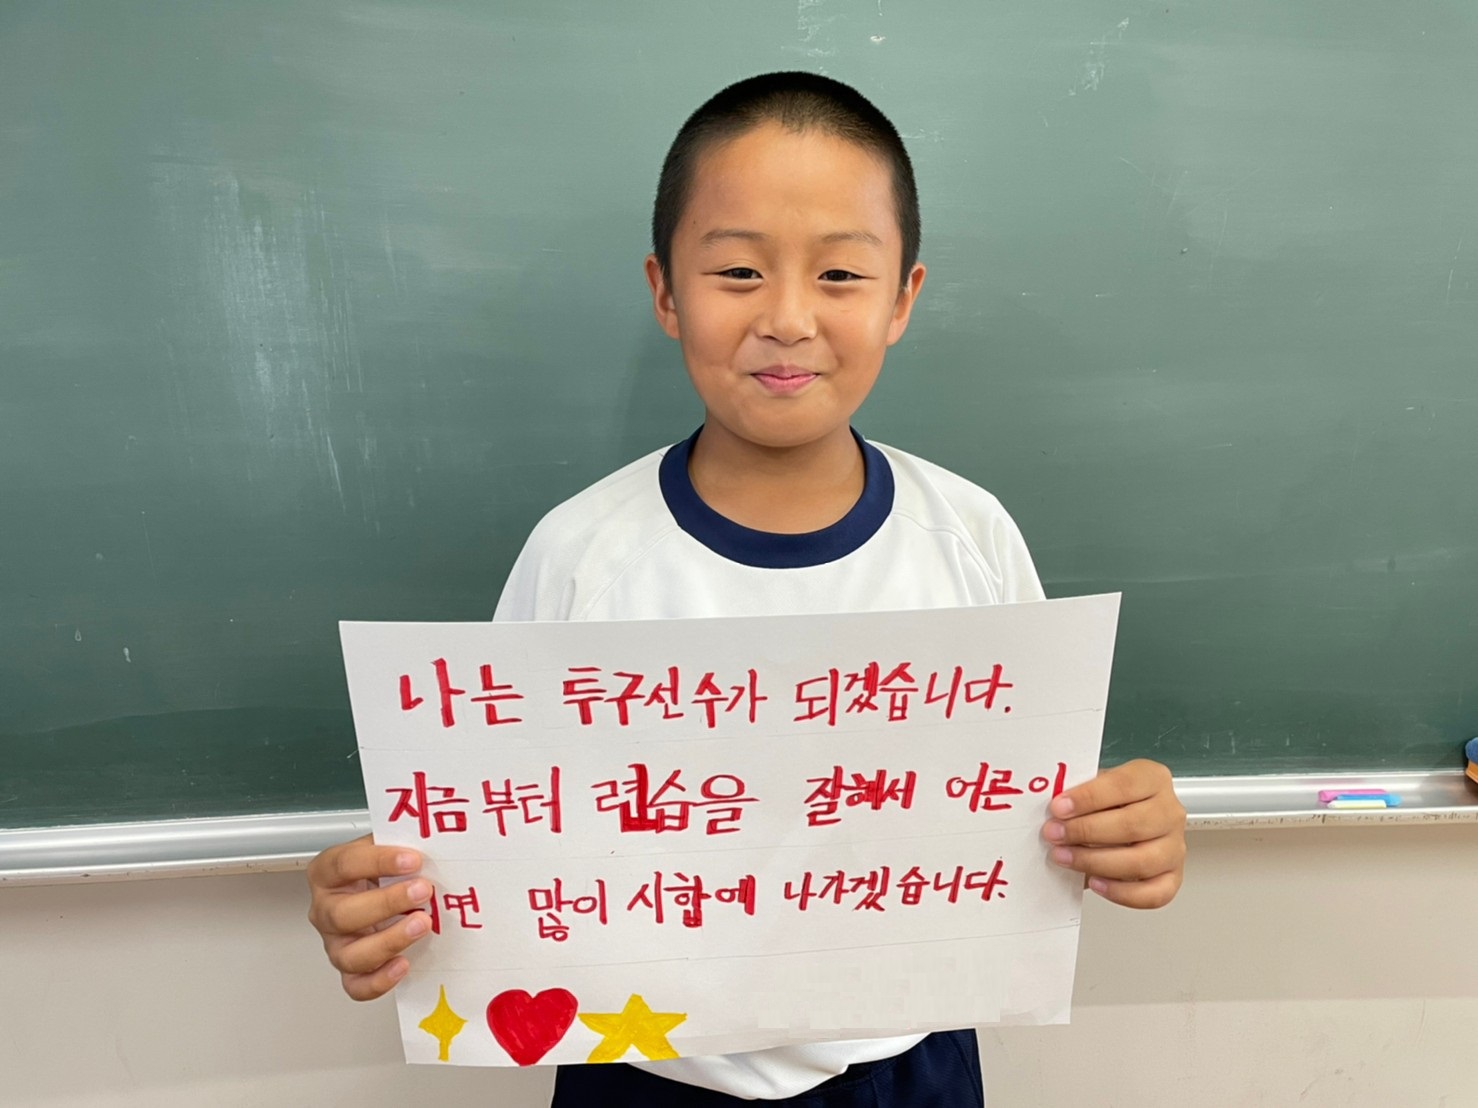 나는 투구선수가 되겠습니다.
지금부터 련습을 잘해서 어른이
면 많이 시합에 나가겠습니다.